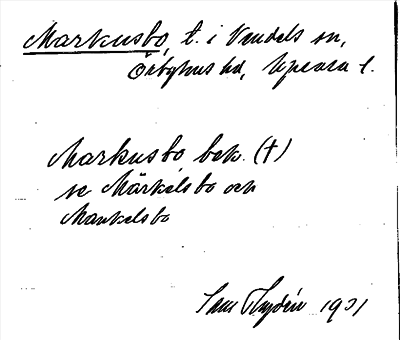 Markusbo, t. i Vendels sn,
Örbyhus hd, Uppsala l.
Markusbo bek. (t)
se Märkelsbo och
Markelsbo
Sam 1931